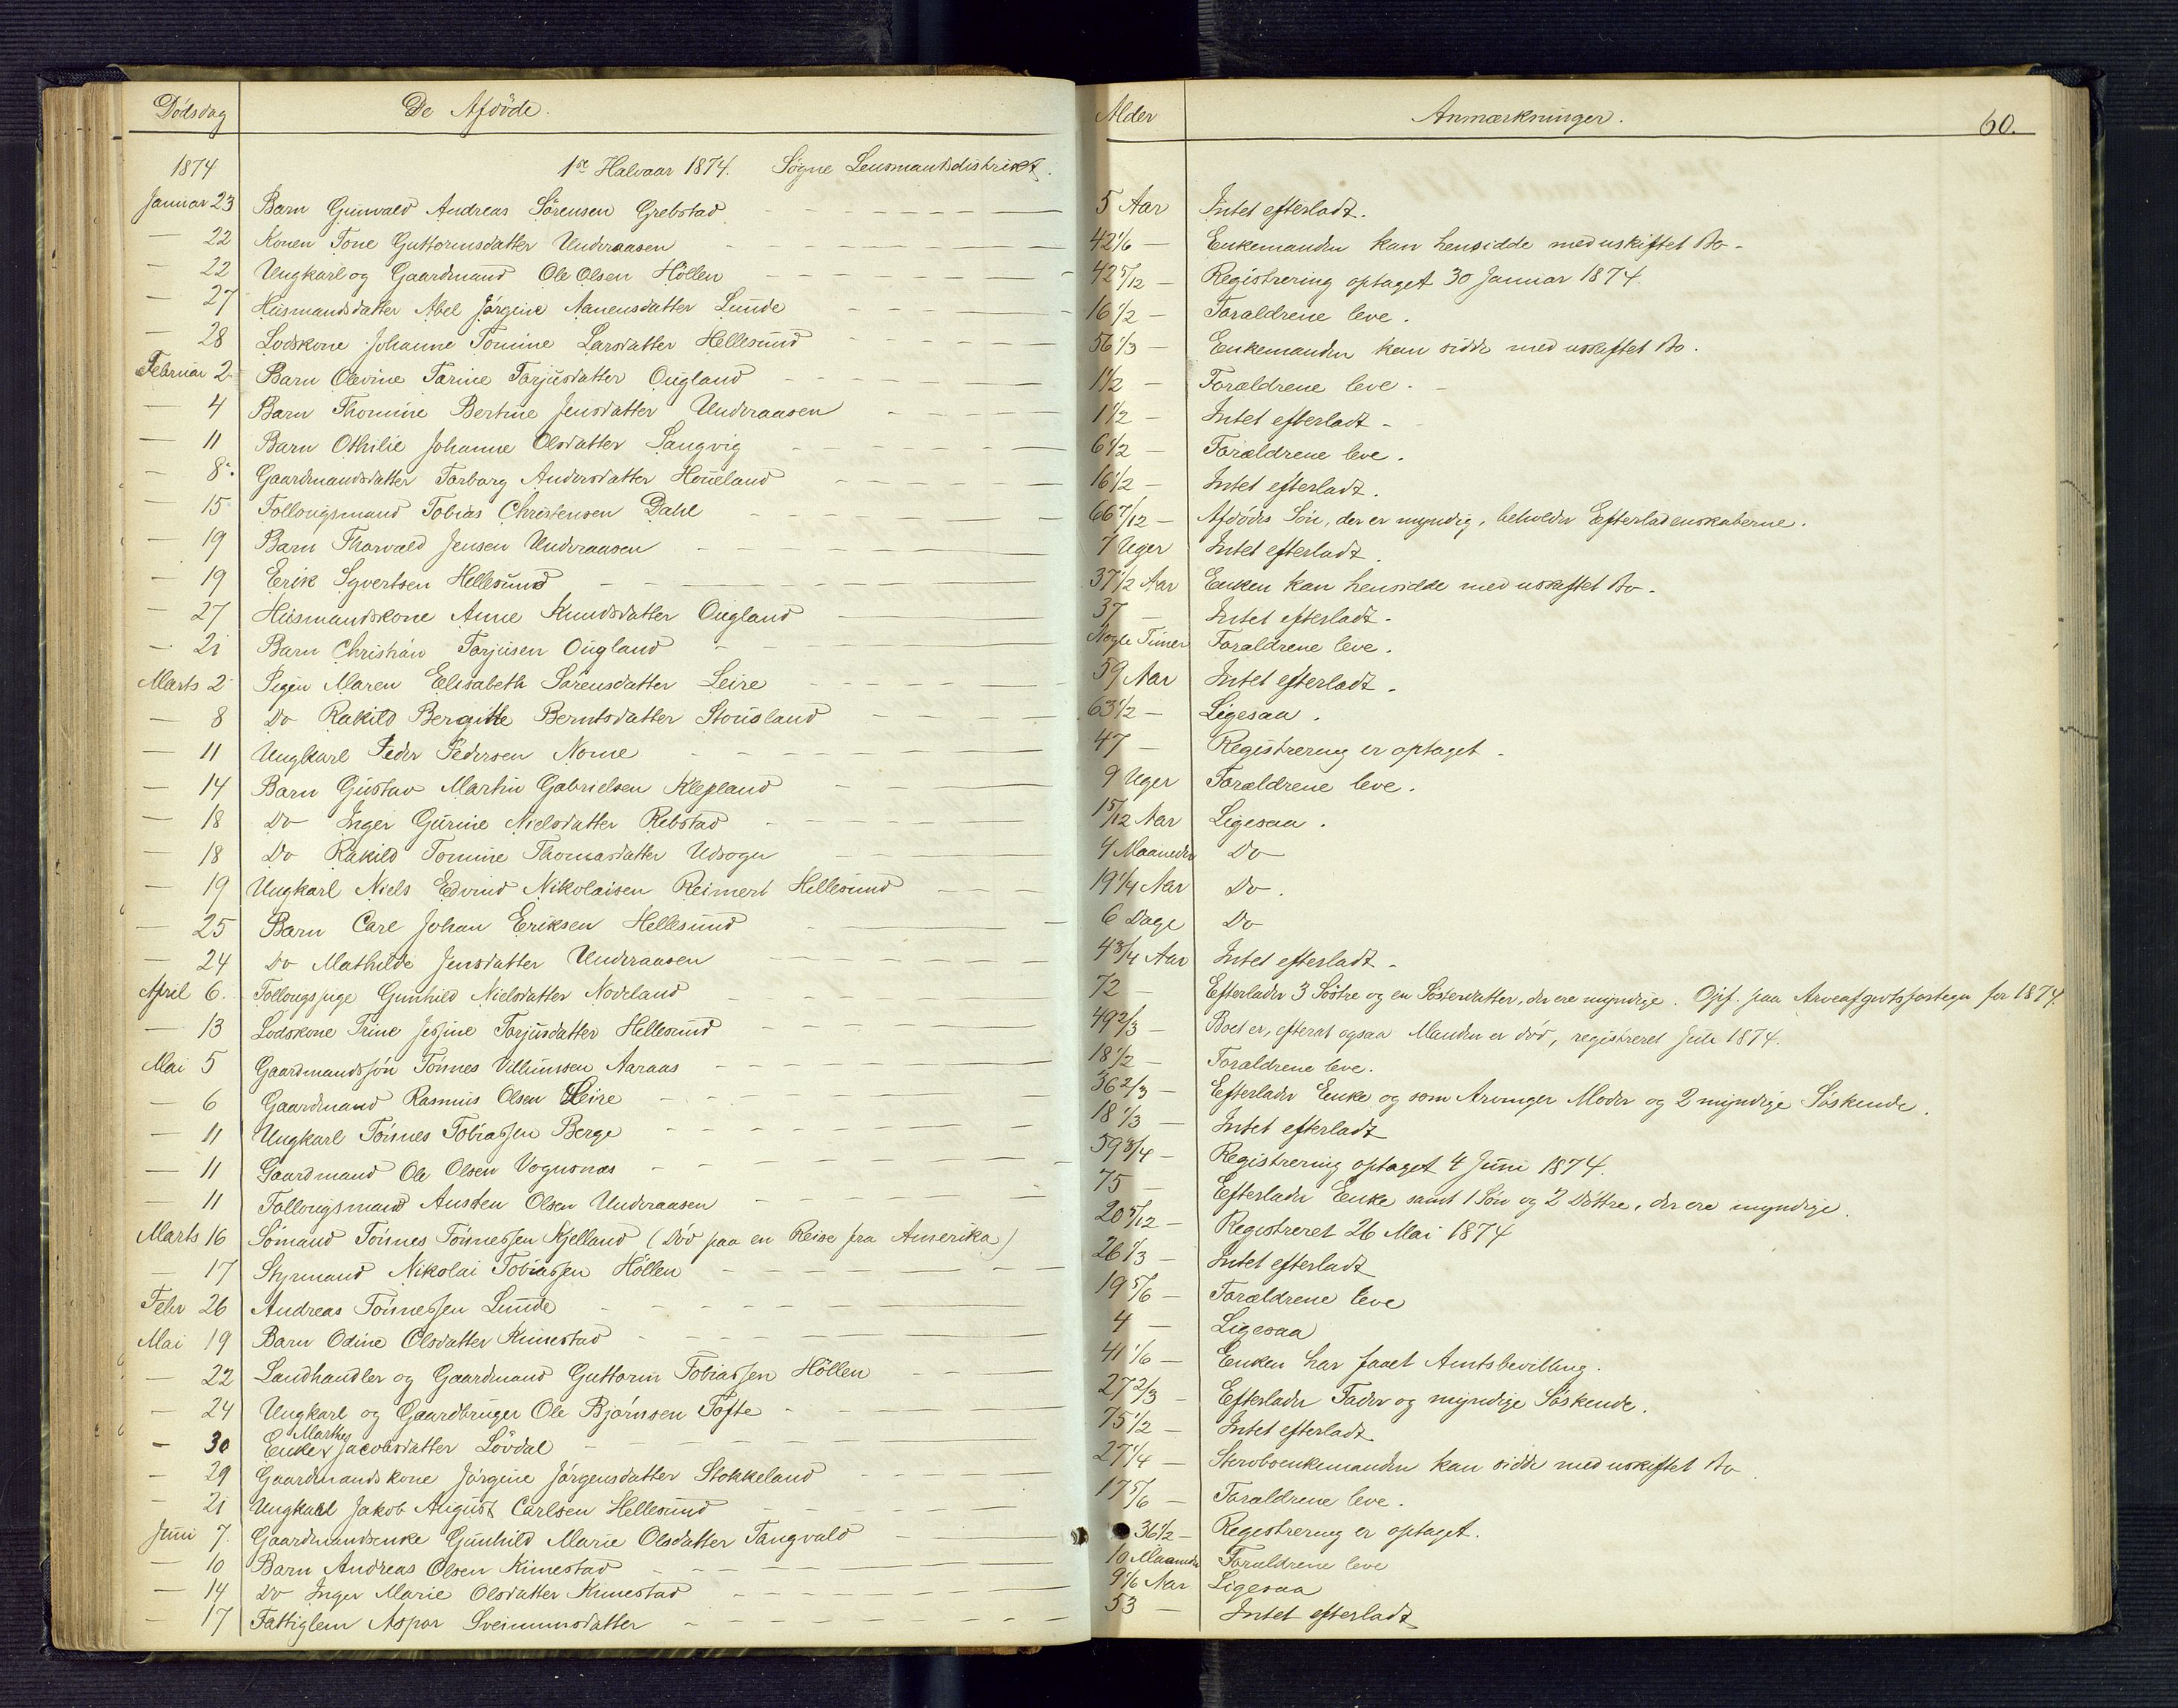 Dödsdag De Afdöde. Alder Anmærkninger. 60.
1874 1ste Halvaar 1874. Søgne Lensmandsdistrikt.
Januar 23 Barn Gunvald Andreas Sörensen Grebstad 5 Aar Intet efterladt.
— 22 Konen Tone Guttormsdatter Underaasen 42 1/6 — Enkemanden kan hensidde med uskiftet Bo.
— 22 Ungkarl og Gaardmand Ole Olsen Höllen 42 5/12 — Registrering optaget 30 Januar 1874.
— 27 Husmandsdatter Abel Jörgine Aanensdatter Lunde 16 1/2 — Forældrene leve.
— 28 Lodskone Johanne Tomine Larsdatter Hellesund 56 1/3 — Enkemanden kan sidde med uskiftet Bo.
Februar 2 Barn Olevine Tarine Tarjusdatter Ougland 1 1/2 — Forældrene leve.
— 4 Barn Thomine Bertine Jensdatter Underaasen 1 1/2 — Intet efterladt.
— 11 Barn Othilie Johanne Olsdatter Langvig 6 1/2 — Forældrene leve.
— 8. Gaardmandsdatter Torborg Andersdatter Houeland 16 1/2 — Intet efterladt.
— 15 Follougsmand Tobias Christensen Dahl 66 7/12 — Afdödes Sön, der er myndig, beholder Efterladenskaberne.
— 19 Barn Thorvald Jensen Underaasen 7 Uger Intet efterladt.
— 19 Erik Syvertsen Hellesund 37 1/2 Aar Enken kan hensidde med uskiftet Bo.
— 27 Husmandskone Anne Knudsdatter Ougland 37 — Intet efterladt.
— 21 Barn Christian Tarjusen Ougland Nogle Timer Forældrene leve.
Marts 2 Pigen Maren Elisabeth Sörensdatter Leire 59 Aar Intet efterladt.
— 8 Do Rakild Bergitte Berntsdatter Stousland 63 1/2 — Ligesaa.
— 11 Ungkarl Peder Pedersen Nome 47 — Registrering er optaget.
— 14 Barn Gustav Martin Gabrielsen Klepland 9 Uger Forældrene leve.
— 18 Do Inger Gurine Nielsdatter Rebstad 1 5/12 Aar Ligesaa.
— 18 Do Rakild Tomine Thomasdatter Udsogn 4 Maaneder Do
— 19 Ungkarl Niels Edvind Nikolaisen Reimert Hellesund 19 1/4 Aar Do.
— 25 Barn Carl Johan Eriksen Hellesund 6 Dage Do
— 24 Do Mathilde Jensdatter Underaasen 4 3/4 Aar Intet efterladt.
April 6. Follougspige Gunhild Nielsdatter Nodeland 72 — Efterlader 3 Söstre og en Sösterdatter, der ere myndige. Opf. paa Arveafgiftsfortegn for 1874.
— 13 Lodskone Trine Jessine Tarjusdatter Hellesund 49 2/3 — Boet er, efterat ogsaa Manden er död, registreret Juli 1874.
Mai 5 Gaardmandssön Tönnes Villumsen Aaraas 18 1/2 — Forældrene leve.
— 6 Gaardmand Rasmus Olsen Leire 36 2/3 — Efterlader Enke og som Arvinger Moder og 2 myndige Söskende.
— 11 Ungkarl Tönnes Tobiassen Berge 18 1/3 — Intet efterladt
— 11 Gaardmand Ole Olsen Vognsnæs 59 3/4 — Registrering optaget 4 Juni 1874.
— 11 Follougsmand Austen Olsen Underaasen 75 — Efterlader Enke samt 1 Sön og 2 Döttre, der ere myndige.
Marts 16 Sömand Tönnes Tönnessen Kjelland (Död paa en Reise fra Amerika) 20 5/12 — Registreret 26 Mai 1874
— 17 Styrmand Nikolai Tobiassen Höllen 26 1/3 — Intet efterladt
Febr 26 Andreas Tönnessen Lunde 19 5/6 — Forældrene leve
Mai 19 Barn Odine Olsdatter Kimestad 4 — Ligesaa
— 22 Landhandler og Gaardmand Guttorm Tobiassen Höllen 41 1/6 — Enken har faaet Amtsbevilling.
— 24 Ungkarl og Gaardbruger Ole Bjørnsen Tofte 27 2/3 — Efterlader Fader og myndige Söskende.
— 30 Enke Marthe Jacobsdatter Lövdal 75 1/2 — Intet efterladt
— 29 Gaardmandskone Jörgine Jörgensdatter Stokkeland 27 1/4 — Stervboenkemanden kan sidde med uskiftet Bo.
— 21 Ungkarl Jakob August Carlsen Hellesund 17 5/6 — Forældrene leve.
Juni 7. Gaardmandsenke Gunhild Marie Olsdatter Tangvald 36 1/2 — Registrering er optaget.
— 10 Barn Andreas Olsen Kimestad 10 Maaneder Forældrene leve
— 14 Do Inger Marie Olsdatter Kimestad 9 1/6 Aar Ligesaa
— 17 Fattiglem Aspor Sveinumsdatter 53 — Intet efterladt